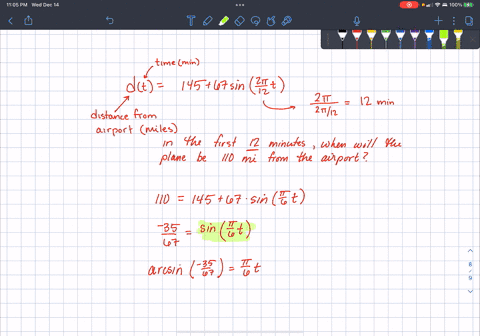 11:05 PM Wed Dec 14
time (min)
d(t) = 145 + 67 sin (2π/12 t)
2π / 2π/12 = 12 min
distance from
airport (miles)
in the first 12 minutes, when will the
plane be 110 mi from the airport?
110 = 145 + 67 · sin (π/6 t)
-35/67 = sin (π/6 t)
arcsin (-35/67) = π/6 t